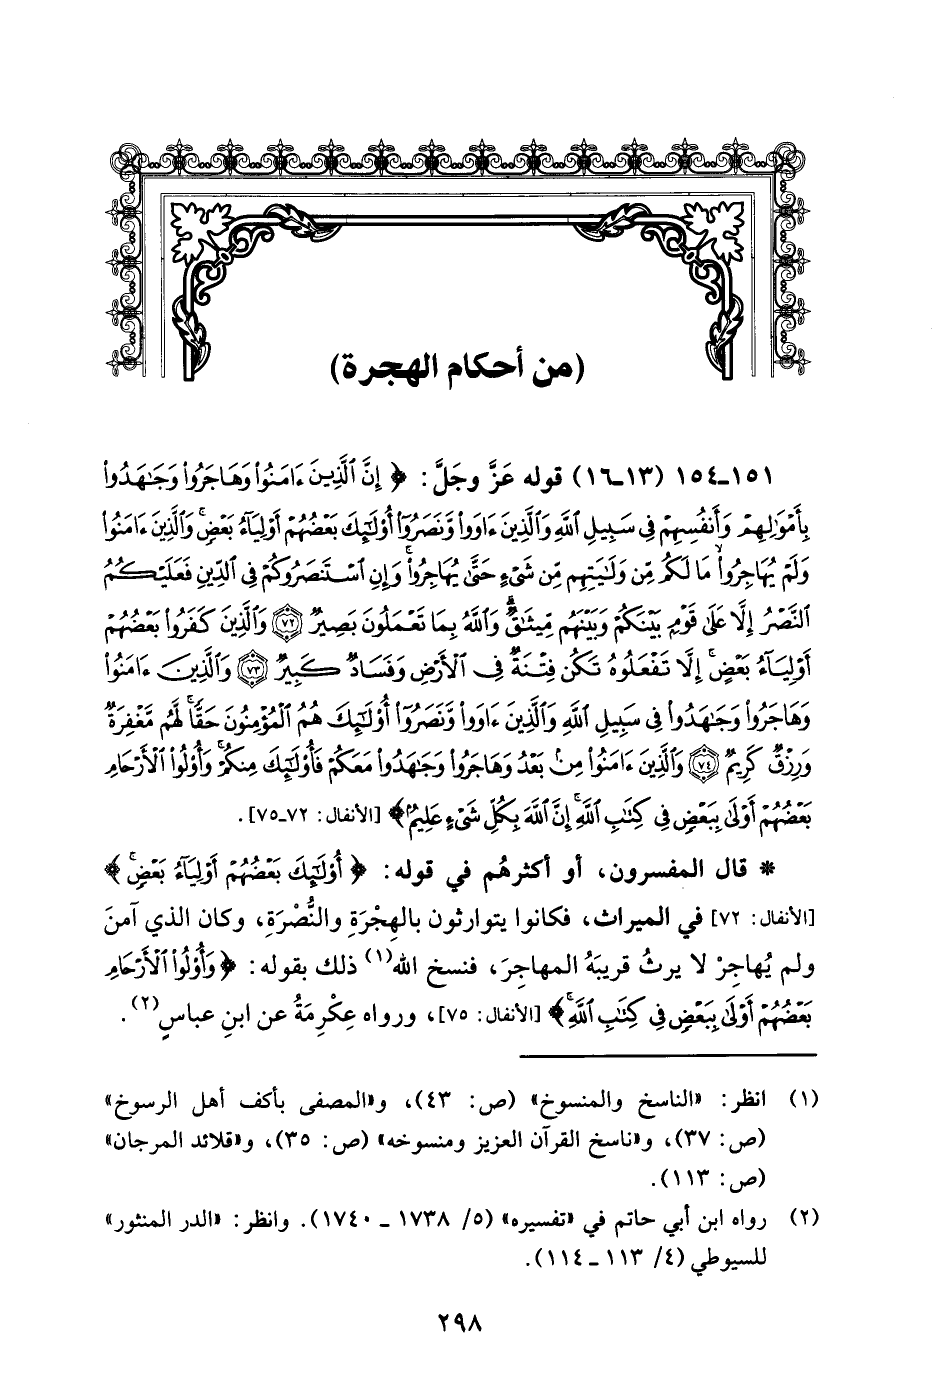 (من أحكام الهجرة)
١٥١ـ١٥٤ (١٣ـ١٦) قوله عَزَّ وجَلَّ: ﴿إِنَّ ٱلَّذِينَ ءَامَنُوا۟ وَهَاجَرُوا۟ وَجَـٰهَدُوا۟
بِأَمْوَٰلِهِمْ وَأَنفُسِهِمْ فِى سَبِيلِ ٱللَّهِ وَٱلَّذِينَ ءَاوَوا۟ وَّنَصَرُوٓا۟ أُو۟لَـٰٓئِكَ بَعْضُهُمْ أَوْلِيَآءُ بَعْضٍ ۚ وَٱلَّذِينَ ءَامَنُوا۟
وَلَمْ يُهَاجِرُوا۟ مَا لَكُم مِّن وَلَـٰيَتِهِم مِّن شَىْءٍ حَتَّىٰ يُهَاجِرُوا۟ ۚ وَإِنِ ٱسْتَنصَرُوكُمْ فِى ٱلدِّينِ فَعَلَيْكُمُ
ٱلنَّصْرُ إِلَّا عَلَىٰ قَوْمٍۭ بَيْنَكُمْ وَبَيْنَهُم مِّيثَـٰقٌ ۗ وَٱللَّهُ بِمَا تَعْمَلُونَ بَصِيرٌ ﴿٧٢﴾ وَٱلَّذِينَ كَفَرُوا۟ بَعْضُهُمْ
أَوْلِيَآءُ بَعْضٍ ۚ إِلَّا تَفْعَلُوهُ تَكُن فِتْنَةٌ فِى ٱلْأَرْضِ وَفَسَادٌ كَبِيرٌ ﴿٧٣﴾ وَٱلَّذِينَ ءَامَنُوا۟
وَهَاجَرُوا۟ وَجَـٰهَدُوا۟ فِى سَبِيلِ ٱللَّهِ وَٱلَّذِينَ ءَاوَوا۟ وَّنَصَرُوٓا۟ أُو۟لَـٰٓئِكَ هُمُ ٱلْمُؤْمِنُونَ حَقًّا ۚ لَّهُم مَّغْفِرَةٌ
وَرِزْقٌ كَرِيمٌ ﴿٧٤﴾ وَٱلَّذِينَ ءَامَنُوا۟ مِنۢ بَعْدُ وَهَاجَرُوا۟ وَجَـٰهَدُوا۟ مَعَكُمْ فَأُو۟لَـٰٓئِكَ مِنكُمْ ۚ وَأُو۟لُوا۟ ٱلْأَرْحَامِ
بَعْضُهُمْ أَوْلَىٰ بِبَعْضٍ فِى كِتَـٰبِ ٱللَّهِ ۗ إِنَّ ٱللَّهَ بِكُلِّ شَىْءٍ عَلِيمٌۢ﴾ [الأنفال: ٧٢ـ٧٥].
* قال المفسرون، أو أكثرهُم في قوله: ﴿أُو۟لَـٰٓئِكَ بَعْضُهُمْ أَوْلِيَآءُ بَعْضٍ ۚ﴾
[الأنفال: ٧٢] في الميراث، فكانوا يتوارثون بالهِجْرَةِ والنُّصْرَةِ، وكان الذي آمنَ
ولم يُهاجِرْ لا يرثُ قريبَهُ المهاجِرَ، فنسخ الله(١) ذلك بقوله: ﴿وَأُو۟لُوا۟ ٱلْأَرْحَامِ
بَعْضُهُمْ أَوْلَىٰ بِبَعْضٍ فِى كِتَـٰبِ ٱللَّهِ ۚ﴾ [الأنفال: ٧٥]، ورواه عِكْرِمَةُ عن ابنِ عباسٍ(٢).
(١) انظر: «الناسخ والمنسوخ» (ص: ٤٣)، و«المصفى بأكف أهل الرسوخ»
(ص: ٣٧)، و«ناسخ القرآن العزيز ومنسوخه» (ص: ٣٥)، و«قلائد المرجان»
(ص: ١١٣).
(٢) رواه ابن أبي حاتم في «تفسيره» (٥/ ١٧٣٨ ـ ١٧٤٠). وانظر: «الدر المنثور»
للسيوطي (٤/ ١١٣ ـ ١١٤).
٢٩٨